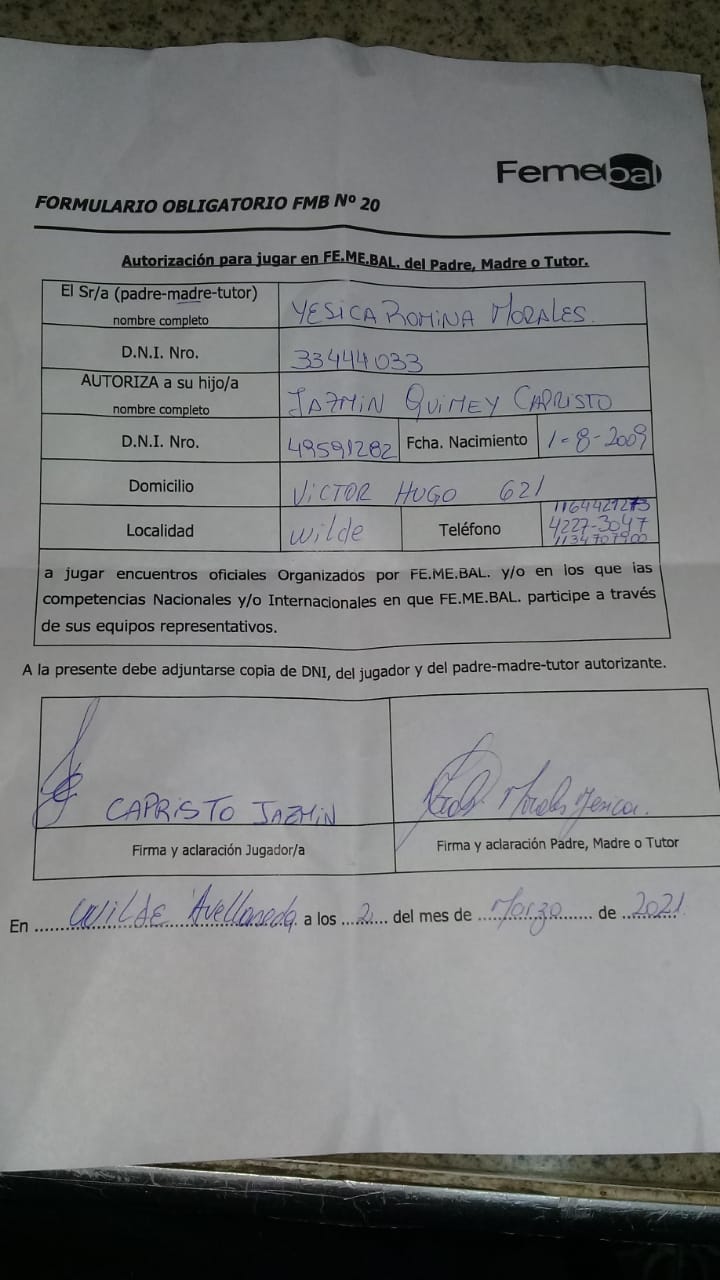 Femebal
FORMULARIO OBLIGATORIO FMB Nº 20
Autorización para jugar en FE.ME.BAL. del Padre, Madre o Tutor.
El Sr/a (padre-madre-tutor)
nombre completo
YESICA ROMINA MORALES.
D.N.I. Nro.
33444033
AUTORIZA a su hijo/a
nombre completo
JAZMIN QUIMEY CAPRISTO
D.N.I. Nro.
49591282
Fcha. Nacimiento
1-8-2009
Domicilio
VICTOR HUGO 621
Localidad
Wilde
Teléfono
4227-3047
1134707900
a jugar encuentros oficiales Organizados por FE.ME.BAL. y/o en los que las
competencias Nacionales y/o Internacionales en que FE.ME.BAL. participe a través
de sus equipos representativos.
A la presente debe adjuntarse copia de DNI, del jugador y del padre-madre-tutor autorizante.
CAPRISTO JAZMIN
Morales Yesica.
Firma y aclaración Jugador/a
Firma y aclaración Padre, Madre o Tutor
En WILDE Avellaneda a los 2 del mes de Marzo de 2021